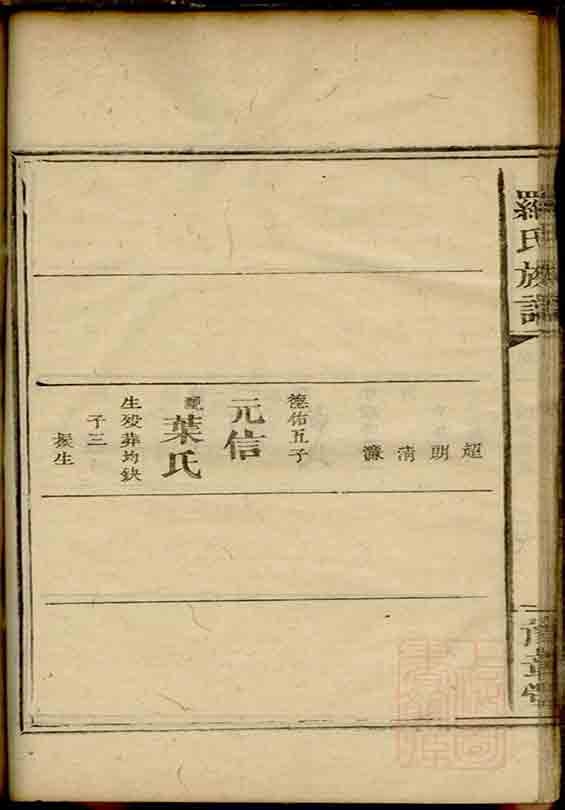 羅氏族譜
超
明
清
濂
德佑五子
元信
葉氏
生殁葬均缺
子三
振生